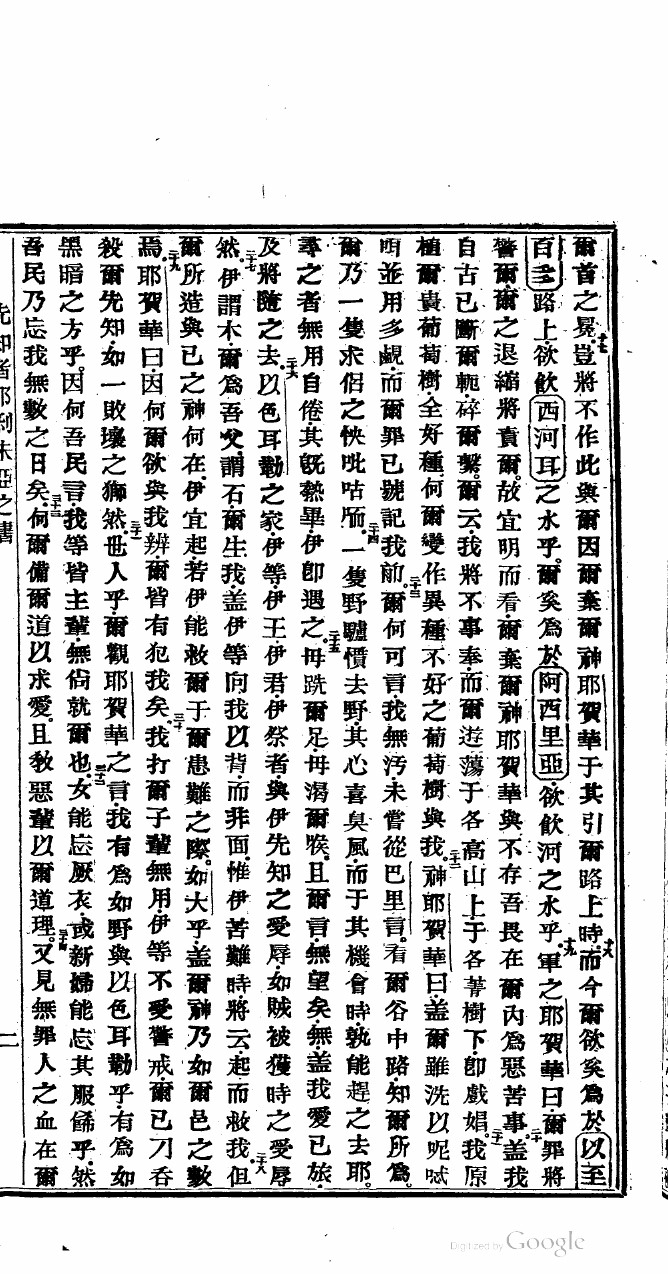 爾首之冕。十七豈將不作此與爾因爾棄爾神耶賀華于其引爾路上時。十八而今爾欲奚爲於以至
百多路上欲飲西河耳之水乎。爾奚爲於阿西里亞欲飲河之水乎。十九軍之耶賀華曰爾罪將
警爾爾之退縮將責爾。故宜明而看爾棄爾神耶賀華與不存吾畏在爾內爲惡苦事。二十蓋我
自古已斷爾軛碎爾繫。爾云我將不事奉。而爾遊蕩于各高山上于各菁樹下即戲娼。二十一我原
植爾貴葡萄樹全好種。何爾變作異種不好之葡萄樹與我。二十二神耶賀華曰蓋爾雖洗以呢
明並用多覷而爾罪已號記我前。二十三爾何可言我無污未嘗從巴里言。看爾谷中路知爾所爲。
爾乃一隻求侶之快吡咕。二十四一隻野驢慣去野其心喜臭風而于其機會時孰能趕之去耶。
尋之者無用自倦其旣熱畢伊即遇之。二十五毋跣爾足毋渴爾喉。且爾言無望矣無蓋我愛已旅
及將隨之去。二十六以色耳勒之家伊等伊王伊君伊祭者與伊先知之愛辱如賊被獲時之受辱
然。二十七伊謂木爾爲吾父。謂石爾生我。蓋伊等向我以背而非面。惟伊苦難時將云起而救我。二十八但
爾所造與已之神何在。伊宜起若伊能救爾于爾患難之際。如大乎蓋爾神乃如爾邑之數
焉。二十九耶賀華曰因何爾欲與我辨爾皆有犯我矣。三十我打爾子輩無用伊等不愛警戒。爾已刀呑
殺爾先知如一敗壞之獅然。三十一世人乎爾觀耶賀華之言。我有爲如野與以色耳勒乎有爲如
黑暗之方乎。因何吾民言我等皆主輩無倘就爾也。三十二女能忘厥衣或新婦能忘其服餙乎。然
吾民乃忘我無數之日矣。三十三何爾備爾道以求愛。且敎惡輩以爾道理。三十四又見無罪人之血在爾
先知者耶利未亞之書
二
Digitized by Google